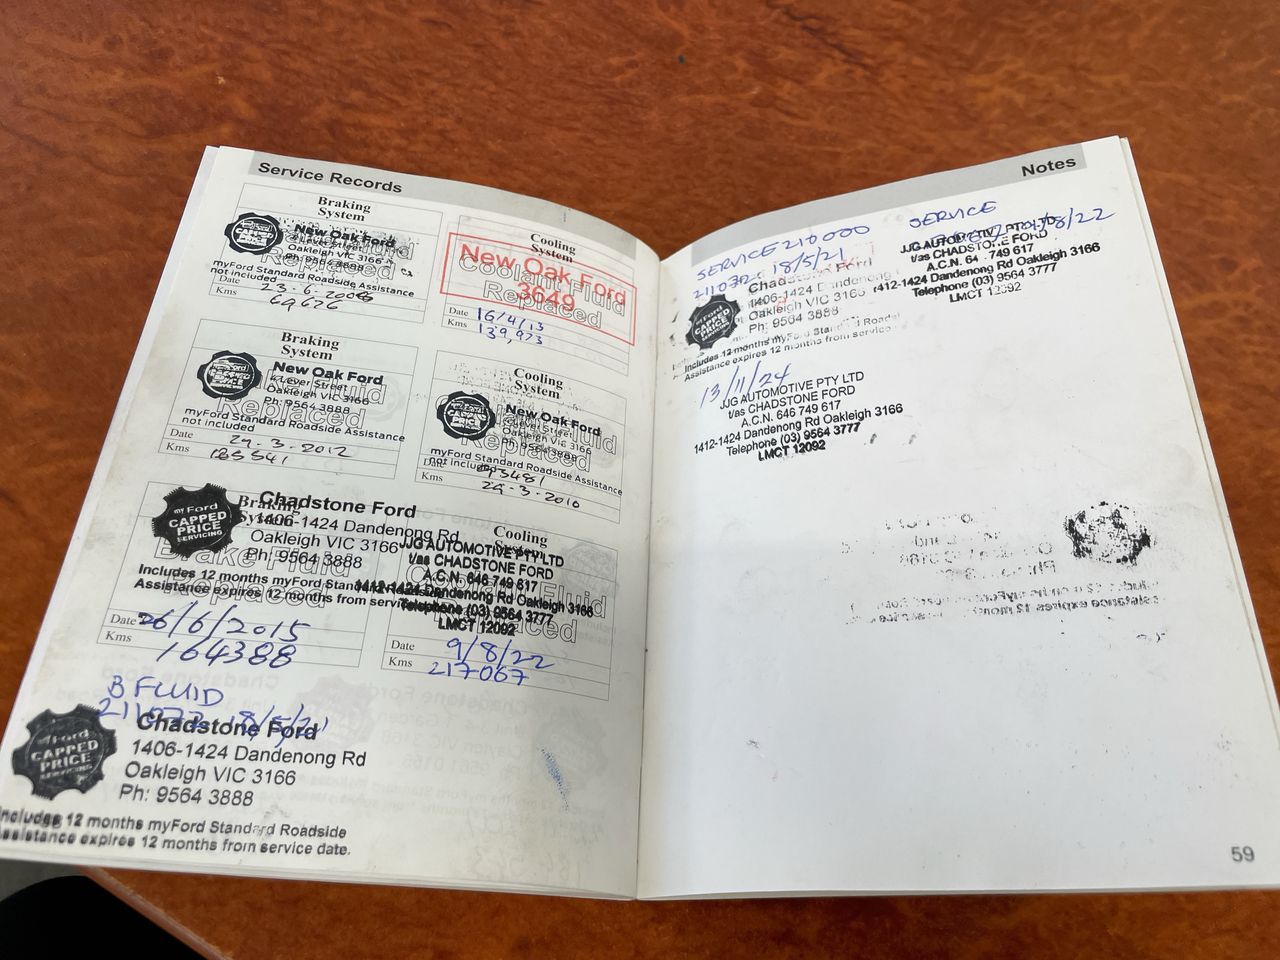 Service Records
Braking
System
New Oak Ford
Lever Street
Oakleigh VIC 3166
Ph: 9564 3888
Replaced
myFord Standard Roadside Assistance
not included
Date
Kms
69626
Cooling
System
New Oak Ford
3649
Coolant Fluid
Replaced
Date 16/4/13
Kms 139,973
Braking
System
New Oak Ford
Lever Street
Oakleigh VIC 3166
Ph: 9564 3888
Replaced
myFord Standard Roadside Assistance
not included
Date 29-3-2012
Kms
Cooling
System
New Oak Ford
Lever Street
Oakleigh VIC 3166
Ph: 9564 3888
Replaced
myFord Standard Roadside Assistance
not included
Date
Kms
Braking
System
my Ford
CAPPED
PRICE
SERVICING
Chadstone Ford
1406-1424 Dandenong Rd
Oakleigh VIC 3166
Ph: 9564 3888
Brake Fluid
Replaced
Includes 12 months myFord Standard
Assistance expires 12 months from service
Date 26/6/2015
Kms 164388
Cooling
System
JJG AUTOMOTIVE PTY LTD
t/as CHADSTONE FORD
A.C.N. 646 749 617
1412-1424 Dandenong Rd Oakleigh 3166
Telephone (03) 9564 3777
LMCT 12092
Fluid
Replaced
Date 9/8/22
Kms 217067
B FLUID
18/5/21
my Ford
CAPPED
PRICE
SERVICING
Chadstone Ford
1406-1424 Dandenong Rd
Oakleigh VIC 3166
Ph: 9564 3888
Includes 12 months myFord Standard Roadside
Assistance expires 12 months from service date.
Notes
SERVICE 210000
18/5/21
Chadstone Ford
1406-1424 Dandenong
Oakleigh VIC 3166
Ph: 9564 3888
CAPPED
PRICE
Includes 12 months myFord Standard Roads
Assistance expires 12 months from service
SERVICE
/8/22
JJG AUTOMOTIVE PTY LTD
t/as CHADSTONE FORD
A.C.N. 64 749 617
1412-1424 Dandenong Rd Oakleigh 3166
Telephone (03) 9564 3777
LMCT 12092
13/11/24
JJG AUTOMOTIVE PTY LTD
t/as CHADSTONE FORD
A.C.N. 646 749 617
1412-1424 Dandenong Rd Oakleigh 3166
Telephone (03) 9564 3777
LMCT 12092
59